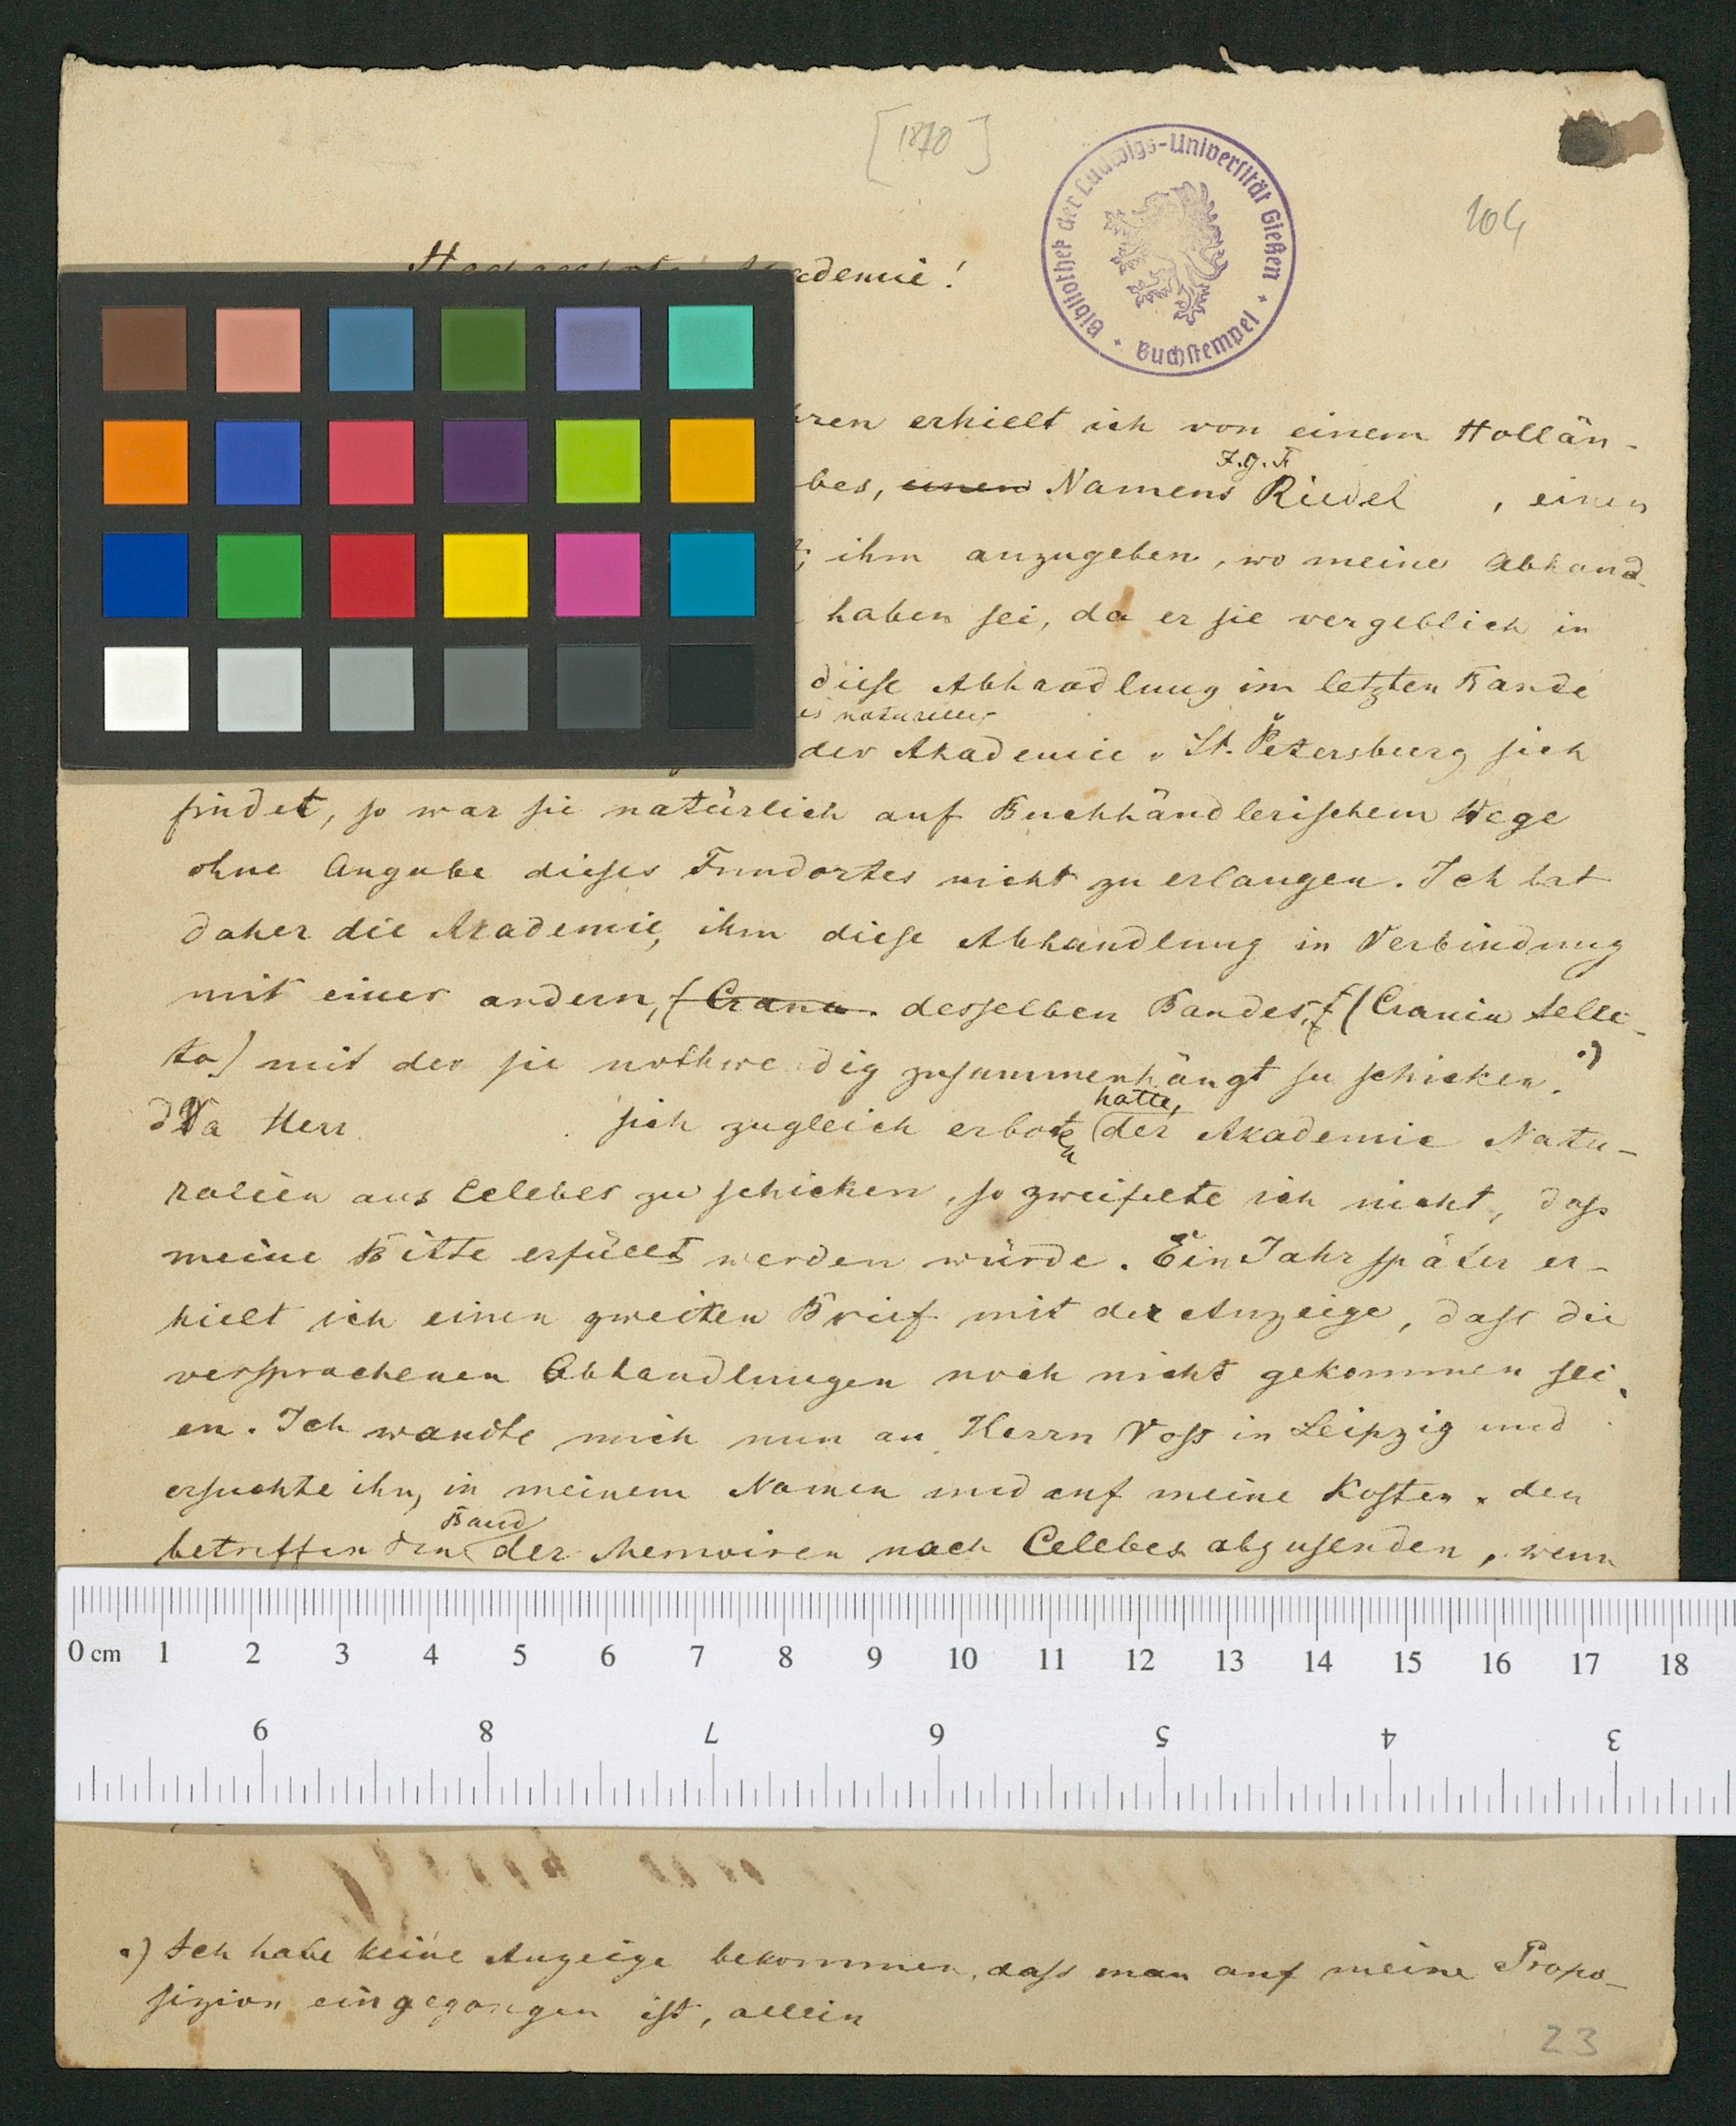 [1870]
Bibliothek der Ludwigs-Universität Gießen
Buchstempel
104
ademie!
hren erhielt ich von einem Hollän-
J. G. F.
bes, einen Namens Riedel , einen
ihm anzugeben, wo meine Abhand-
haben sei, da er sie vergeblich in
diese Abhandlung im letzten Bande
es naturelles
der Akademie St. Petersburg sich
findet, so war sie natürlich auf Buchhändlerischem Wege
ohne Angabe dieses Fundortes nicht zu erlangen. Ich bat
daher die Akademie, ihm diese Abhandlung in Verbindung
mit einer andern, (Crana desselben Bandes, (Crania selec-
ta) mit der sie nothwendig zusammenhängt zu schicken. •)
hatte,
Da Herr sich zugleich erboten der Akademie Natu-
ralien aus Celebes zu schicken, so zweifelte ich nicht, dass
meine Bitte erfüllt werden würde. Ein Jahr später er-
hielt ich einen zweiten Brief mit der Anzeige, dass die
versprochenen Abhandlungen noch nicht gekommen sei
en. Ich wandte mich nun an Herrn Voss in Leipzig und
ersuchte ihn, in meinem Namen und auf meine Kosten den
Band
betreffenden der Memoiren nach Celebes abzusenden, wenn
0 cm 1 2 3 4 5 6 7 8 9 10 11 12 13 14 15 16 17 18
9 8 7 6 5 4 3
•) Ich habe keine Anzeige bekommen, dass man auf meine Propo-
sizion eingegangen ist, allein
23